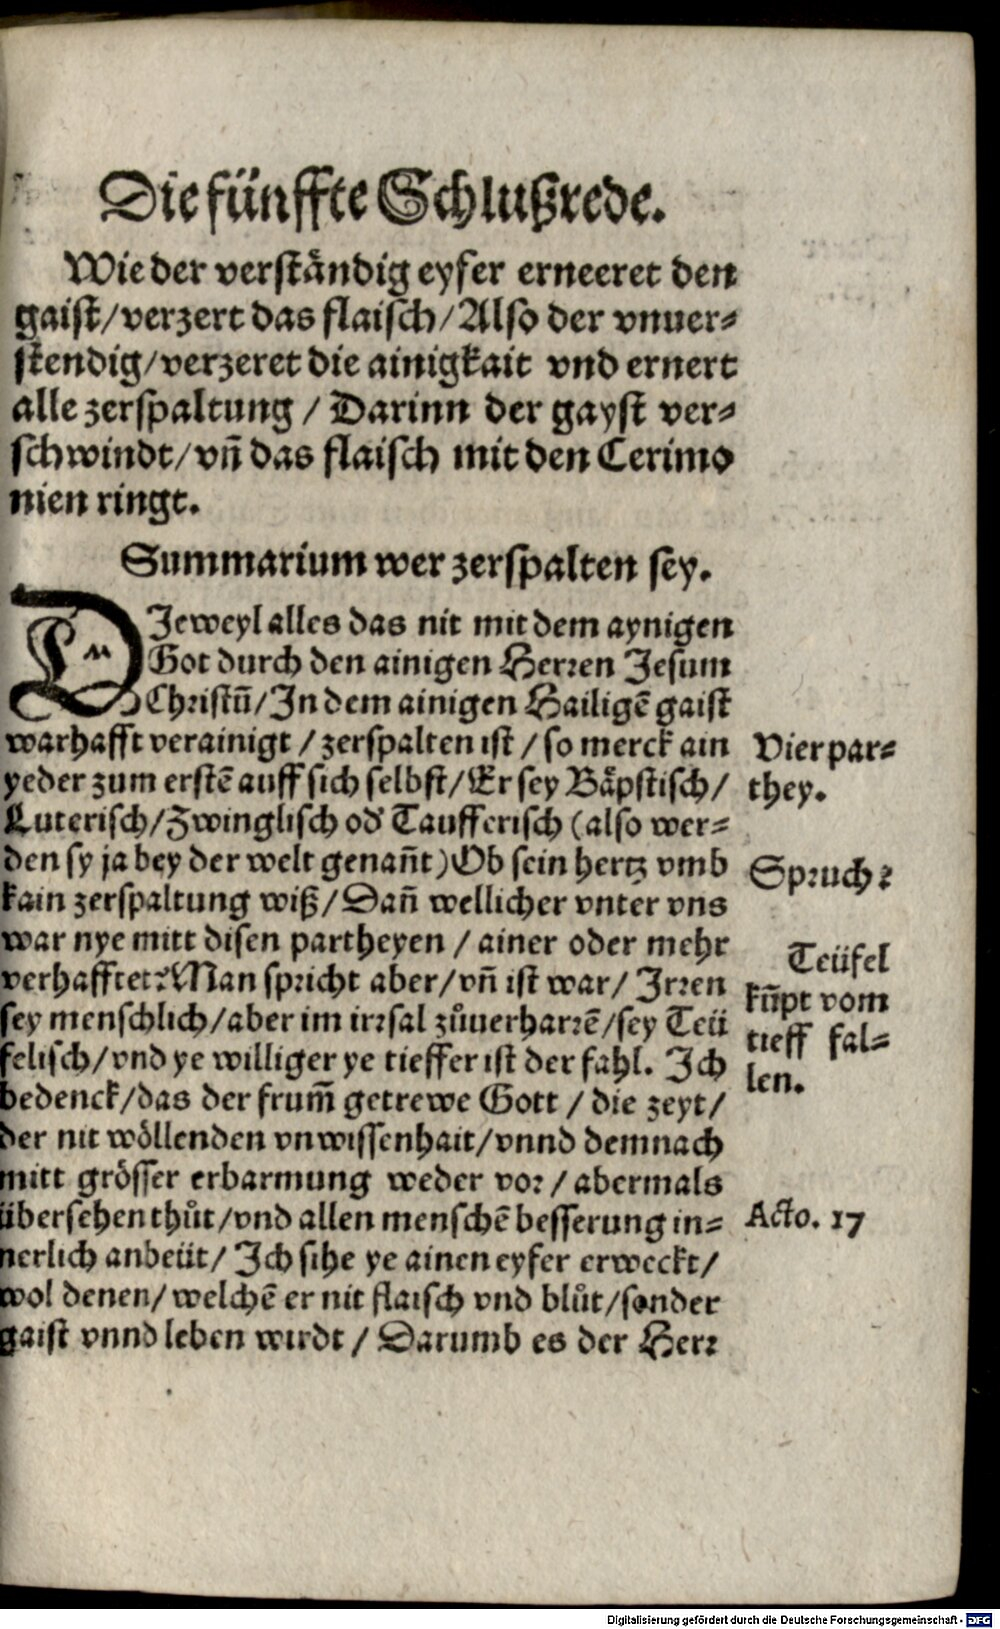 Die fünffte Schlußrede.
Wie der verständig eyfer erneeret den
gaist/verzert das flaisch/Also der vnuer⸗
stendig/verzeret die ainigkait vnd ernert
alle zerspaltung / Darinn der gayst ver⸗
schwindt/vñ das flaisch mit den Cerimo
nien ringt.
Summarium wer zerspalten sey.
DJeweyl alles das nit mit dem aynigen
Got durch den ainigen Herren Jesum
Christū/Jn dem ainigen Hailigē gaist
warhafft verainigt / zerspalten ist / so merck ain
yeder zum erstē auff sich selbst/Er sey Bäpstisch/
Luterisch/Zwinglisch od' Taufferisch (also wer⸗
den sy ja bey der welt genañt) Ob sein hertz vmb
kain zerspaltung wiß/Dañ wellicher vnter vns
war nye mitt disen partheyen / ainer oder mehr
verhafftet? Man spricht aber/vñ ist war/ Jrren
sey menschlich/aber im irrsal zůuerharrē/sey Teü
felisch/vnd ye williger ye tieffer ist der fahl. Jch
bedenck/das der frum̄ getrewe Gott / die zeyt/
der nit wöllenden vnwissenhait/vnnd demnach
mitt grösser erbarmung weder vor / abermals
übersehen thůt/vnd allen menschē besserung in⸗
nerlich anbeüt/ Jch sihe ye ainen eyfer erweckt/
wol denen/welchē er nit flaisch vnd blůt/sonder
gaist vnnd leben wirdt / Darumb es der Herr
Vier par⸗
they.
Spruch?
Teüfel
kūpt vom
tieff fal⸗
len.
Acto. 17
Digitalisierung gefördert durch die Deutsche Forschungsgemeinschaft - DFG